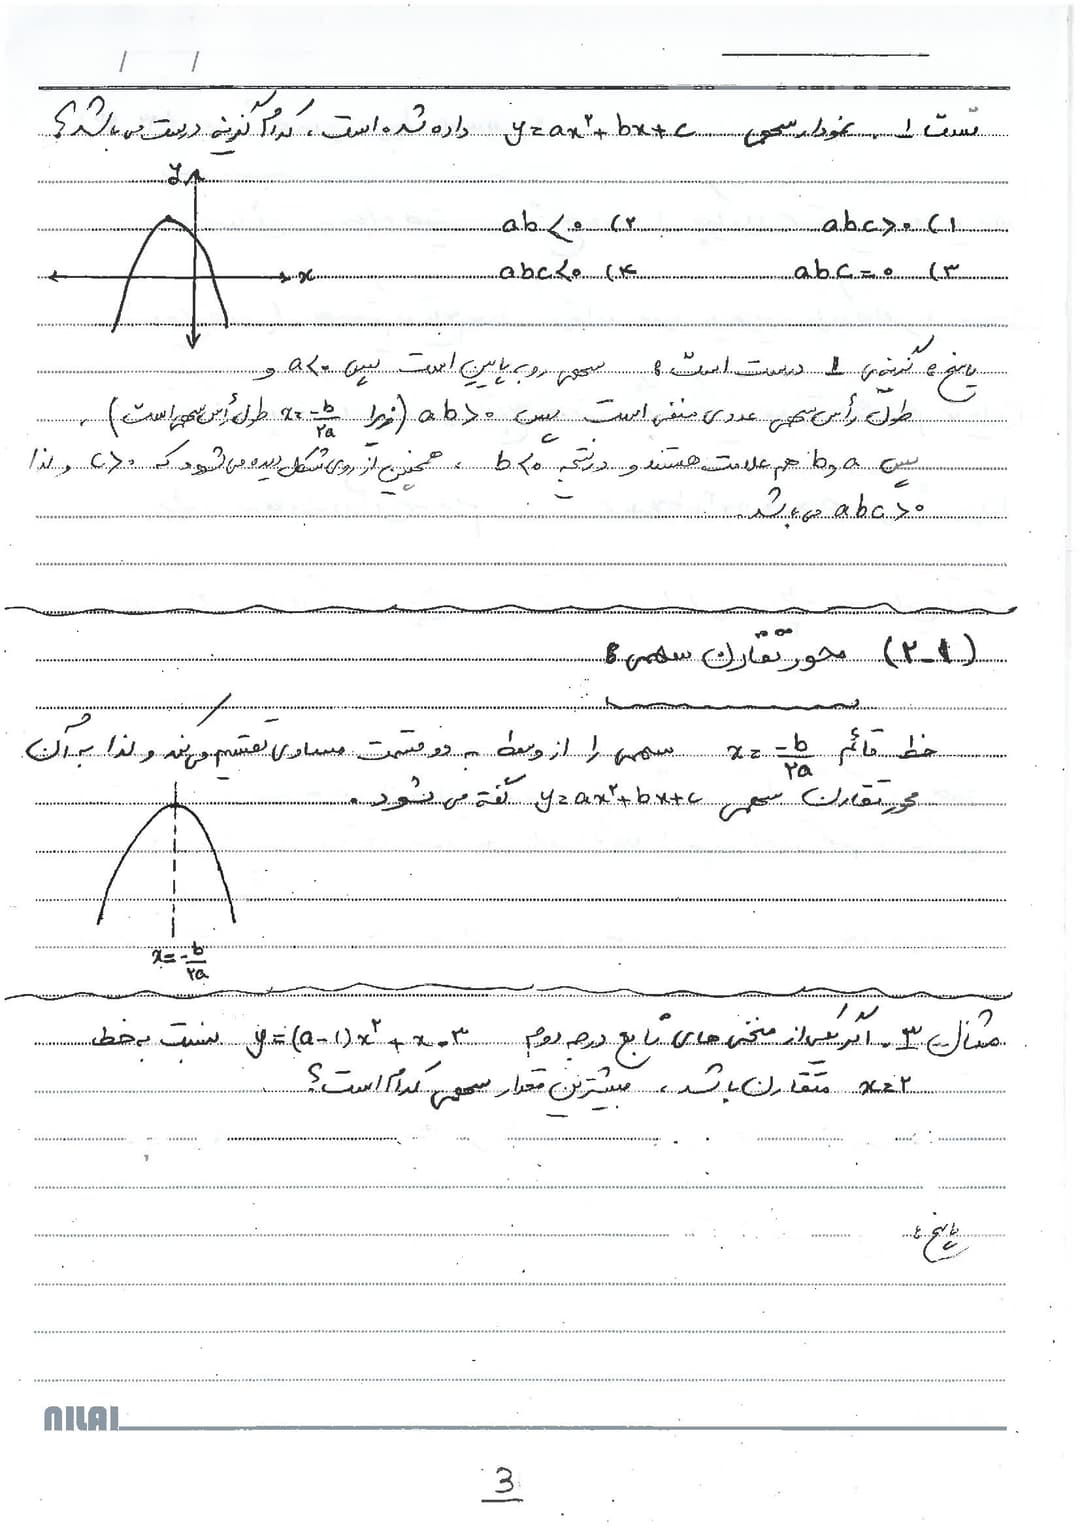 / /
تست ۱. نمودار سهمی y=ax²+bx+c داده شده است، کدام گزینه درست می باشد؟
y
x
۱) abc>۰ ۲) ab<۰
۳) abc=۰ ۴) abc<۰
پاسخ: گزینه‌ی ۱ درست است: سهمی رو به پایین است پس a<۰ و
طول رأس سهمی عددی منفی است پس ab>۰ (زیرا x=-b/۲a طول رأس سهمی است)،
پس a و b هم علامت هستند و در نتیجه b<۰، همچنین از روی شکل دیده می‌شود که c>۰ و لذا
abc>۰ می باشد.
(۲-۱) محور تقارن سهمی:
خط قائم x=-b/۲a سهمی را از وسط به دو قسمت مساوی تقسیم می‌کند و لذا به آن
محور تقارن سهمی y=ax²+bx+c گفته می شود.
x=-b/۲a
مثال ۳. اگر یکی از منحنی های تابع درجه دوم y=(a-۱)x²+x-۳ نسبت به خط
x=۲ متقارن باشد، بیشترین مقدار سهمی کدام است؟
پاسخ:
NILAI
3